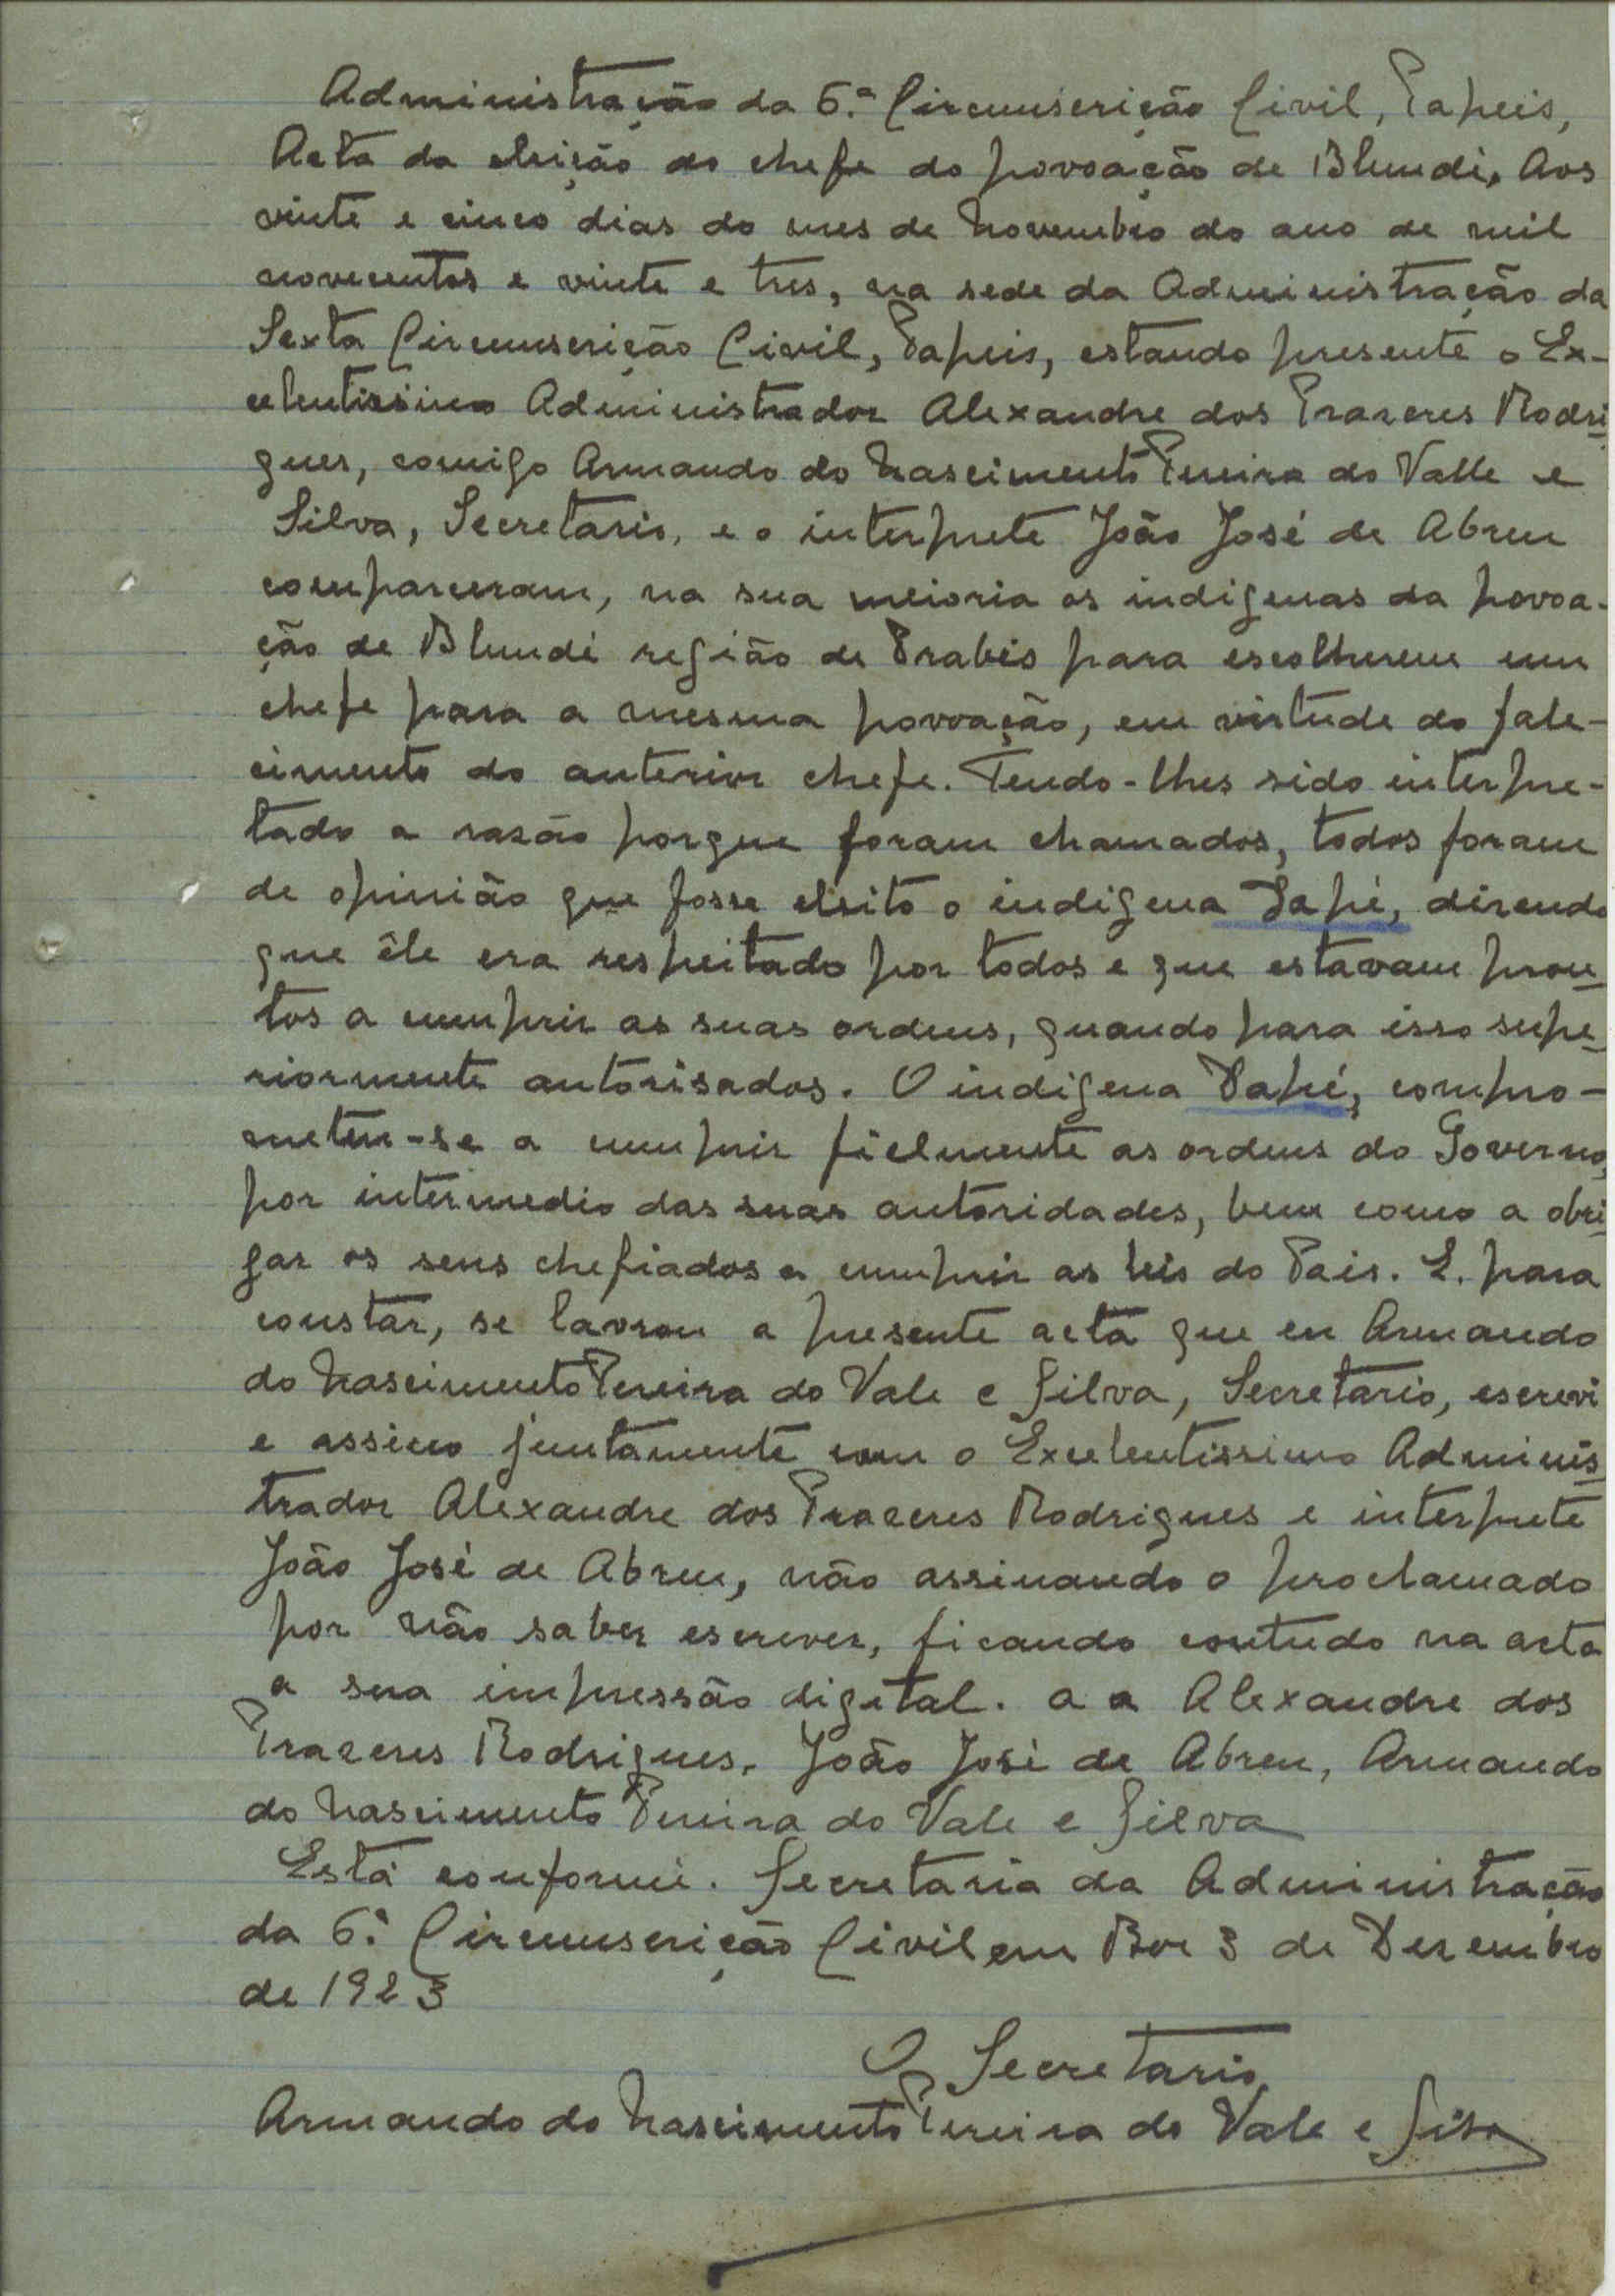 Administração da 6.ª Circunscrição Civil, Papeis,
Acta da eleição do chefe da povoação de Blundi, Aos
vinte e cinco dias do mes de Novembro do ano de mil
novecentos e vinte e tres, na sede da Administração da
Sexta Circunscrição Civil, Papeis, estando presente o Ex-
celentissimo Administrador Alexandre dos Prazeres Rodri-
gues, comigo Armando do Nascimento Pereira do Valle e
Silva, Secretario, e o interprete João José de Abreu
compareceram, na sua meioria os indigenas da povoa-
ção de Blundi região de Prabis para escolherem um
chefe para a mesma povoação, em virtude do fale-
cimento do anterior chefe. Tendo-lhes sido interpre-
tado a rasão porque foram chamados, todos foram
de opinião que fosse eleito o indigena Papé, dizendo
que êle era respeitado por todos e que estavam pron-
tos a cumprir as suas ordens, quando para isso supe-
riormente autorisados. O indigena Papé, compro-
meteu-se a cumprir fielmente as ordens do Governo,
por intermedio das suas autoridades, bem como a obri-
gar os seus chefiados a cumprir as leis do Pais. E. para
constar, se lavrou a presente acta que eu Armando
do Nascimento Pereira do Vale e Silva, Secretario, escrevi
e assino juntamente com o Excelentissimo Adminis-
trador Alexandre dos Prazeres Rodrigues e interprete
João José de Abreu, não assinando o proclamado
por não saber escrever, ficando contudo na acta
a sua impressão digital. a a Alexandre dos
Prazeres Rodrigues, João José de Abreu, Armando
do Nascimento Pereira do Vale e Silva
Está conforme. Secretaria da Administração
da 6.ª Circunscrição Civil em Bor 3 de Dezembro
de 1923
O Secretario,
Armando do Nascimento Pereira do Vale e Silva